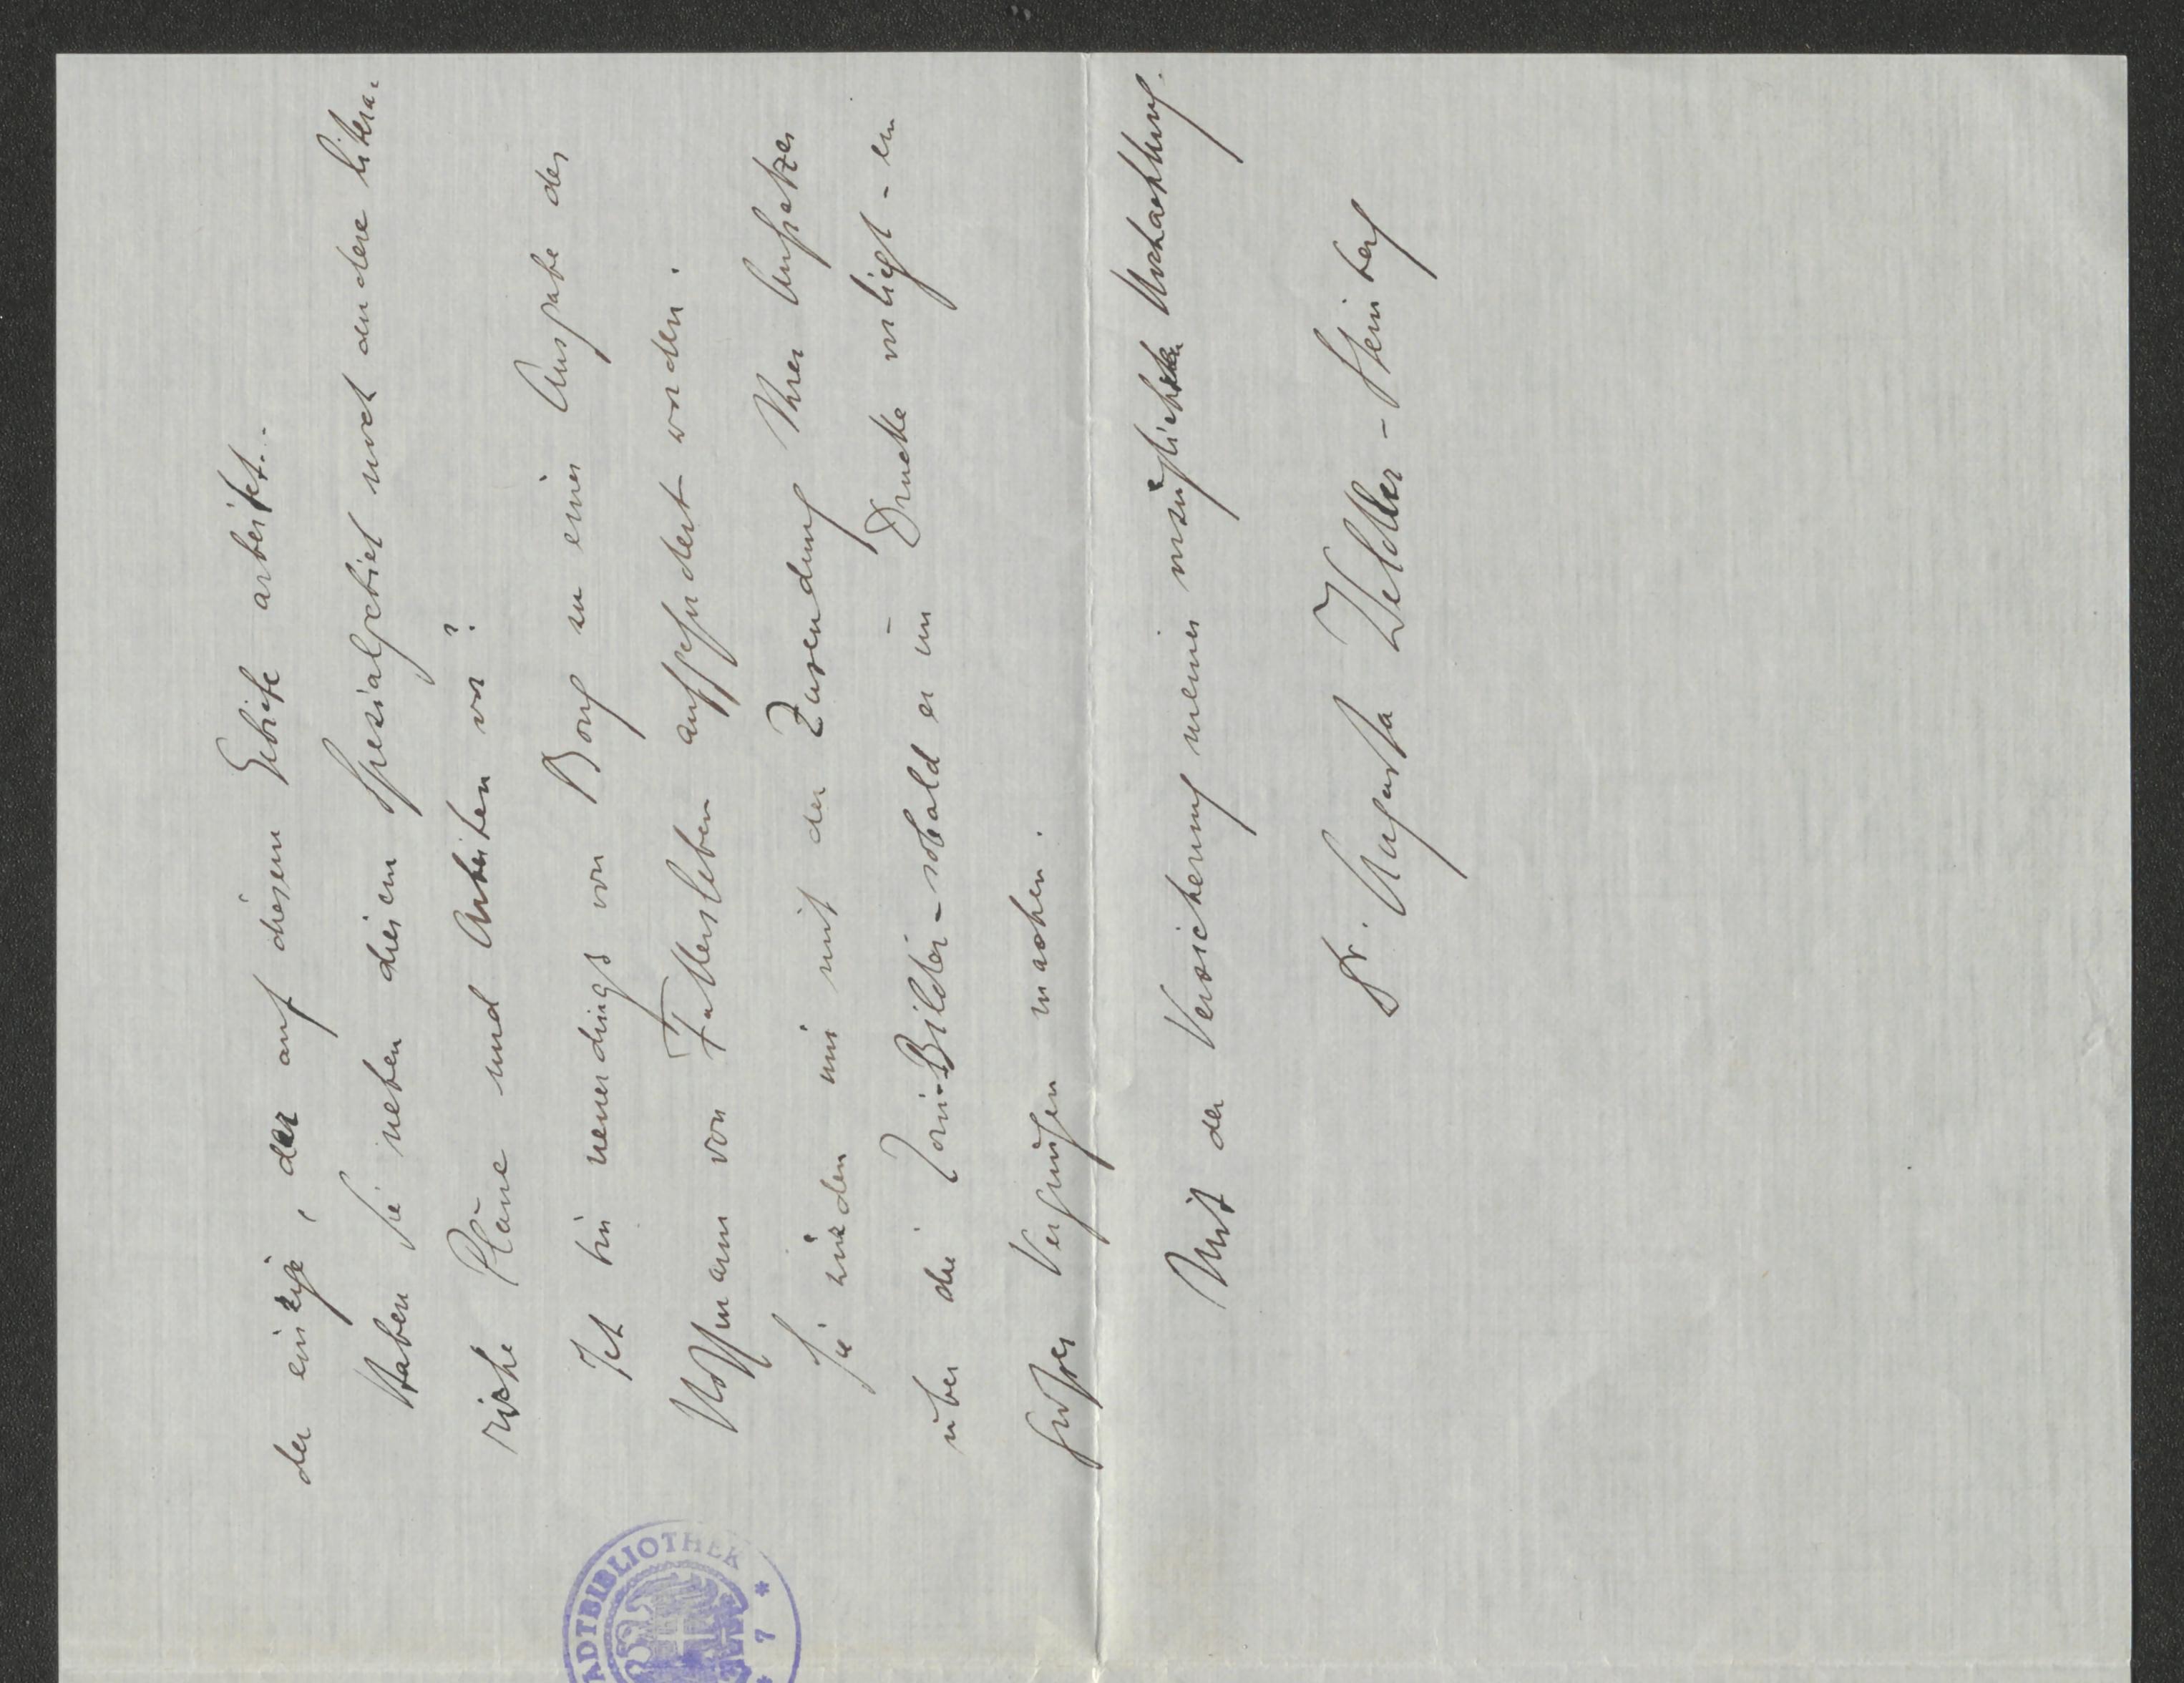 der einzige, der auf diesem Gebiete arbeitet..
Haben Sie neben diesem Spezialgebiet noch andere litera-
rische Pläne und Arbeiten vor?
Ich bin neuerdings von Bong zu einer Ausgabe des
Hoffmann von Fallersleben aufgefordert worden.
Sie würden mir mit der Zusendung Ihres Aufsatzes
über die Zori-Bilder - sobald er im Drucke vorliegt - ein
großes Vergnügen machen.
Mit der Versicherung meiner vorzüglichsten Hochachtung.
Dr. Augusta Weldler-Steinberg
ADTBIBLIOTHEK
* 7 *